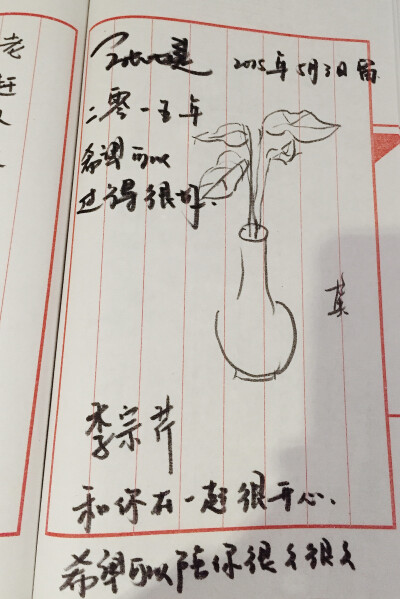 老
赶
2015年5月3日留
二零一五年
希望可以
过得很好.
李宗芹
和你在一起很开心.
希望可以陪你很久很久